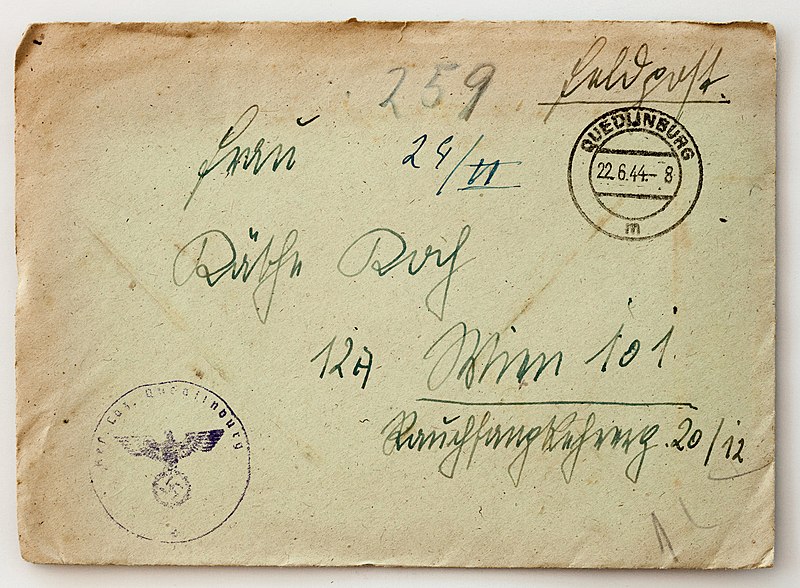 259
Feldpost.
QUEDLINBURG
22.6.44.-8
m
Frau
Käthe Koch
12a Wien 101
Rauchfangkehrerg. 20/12
Res. Laz. Quedlinburg